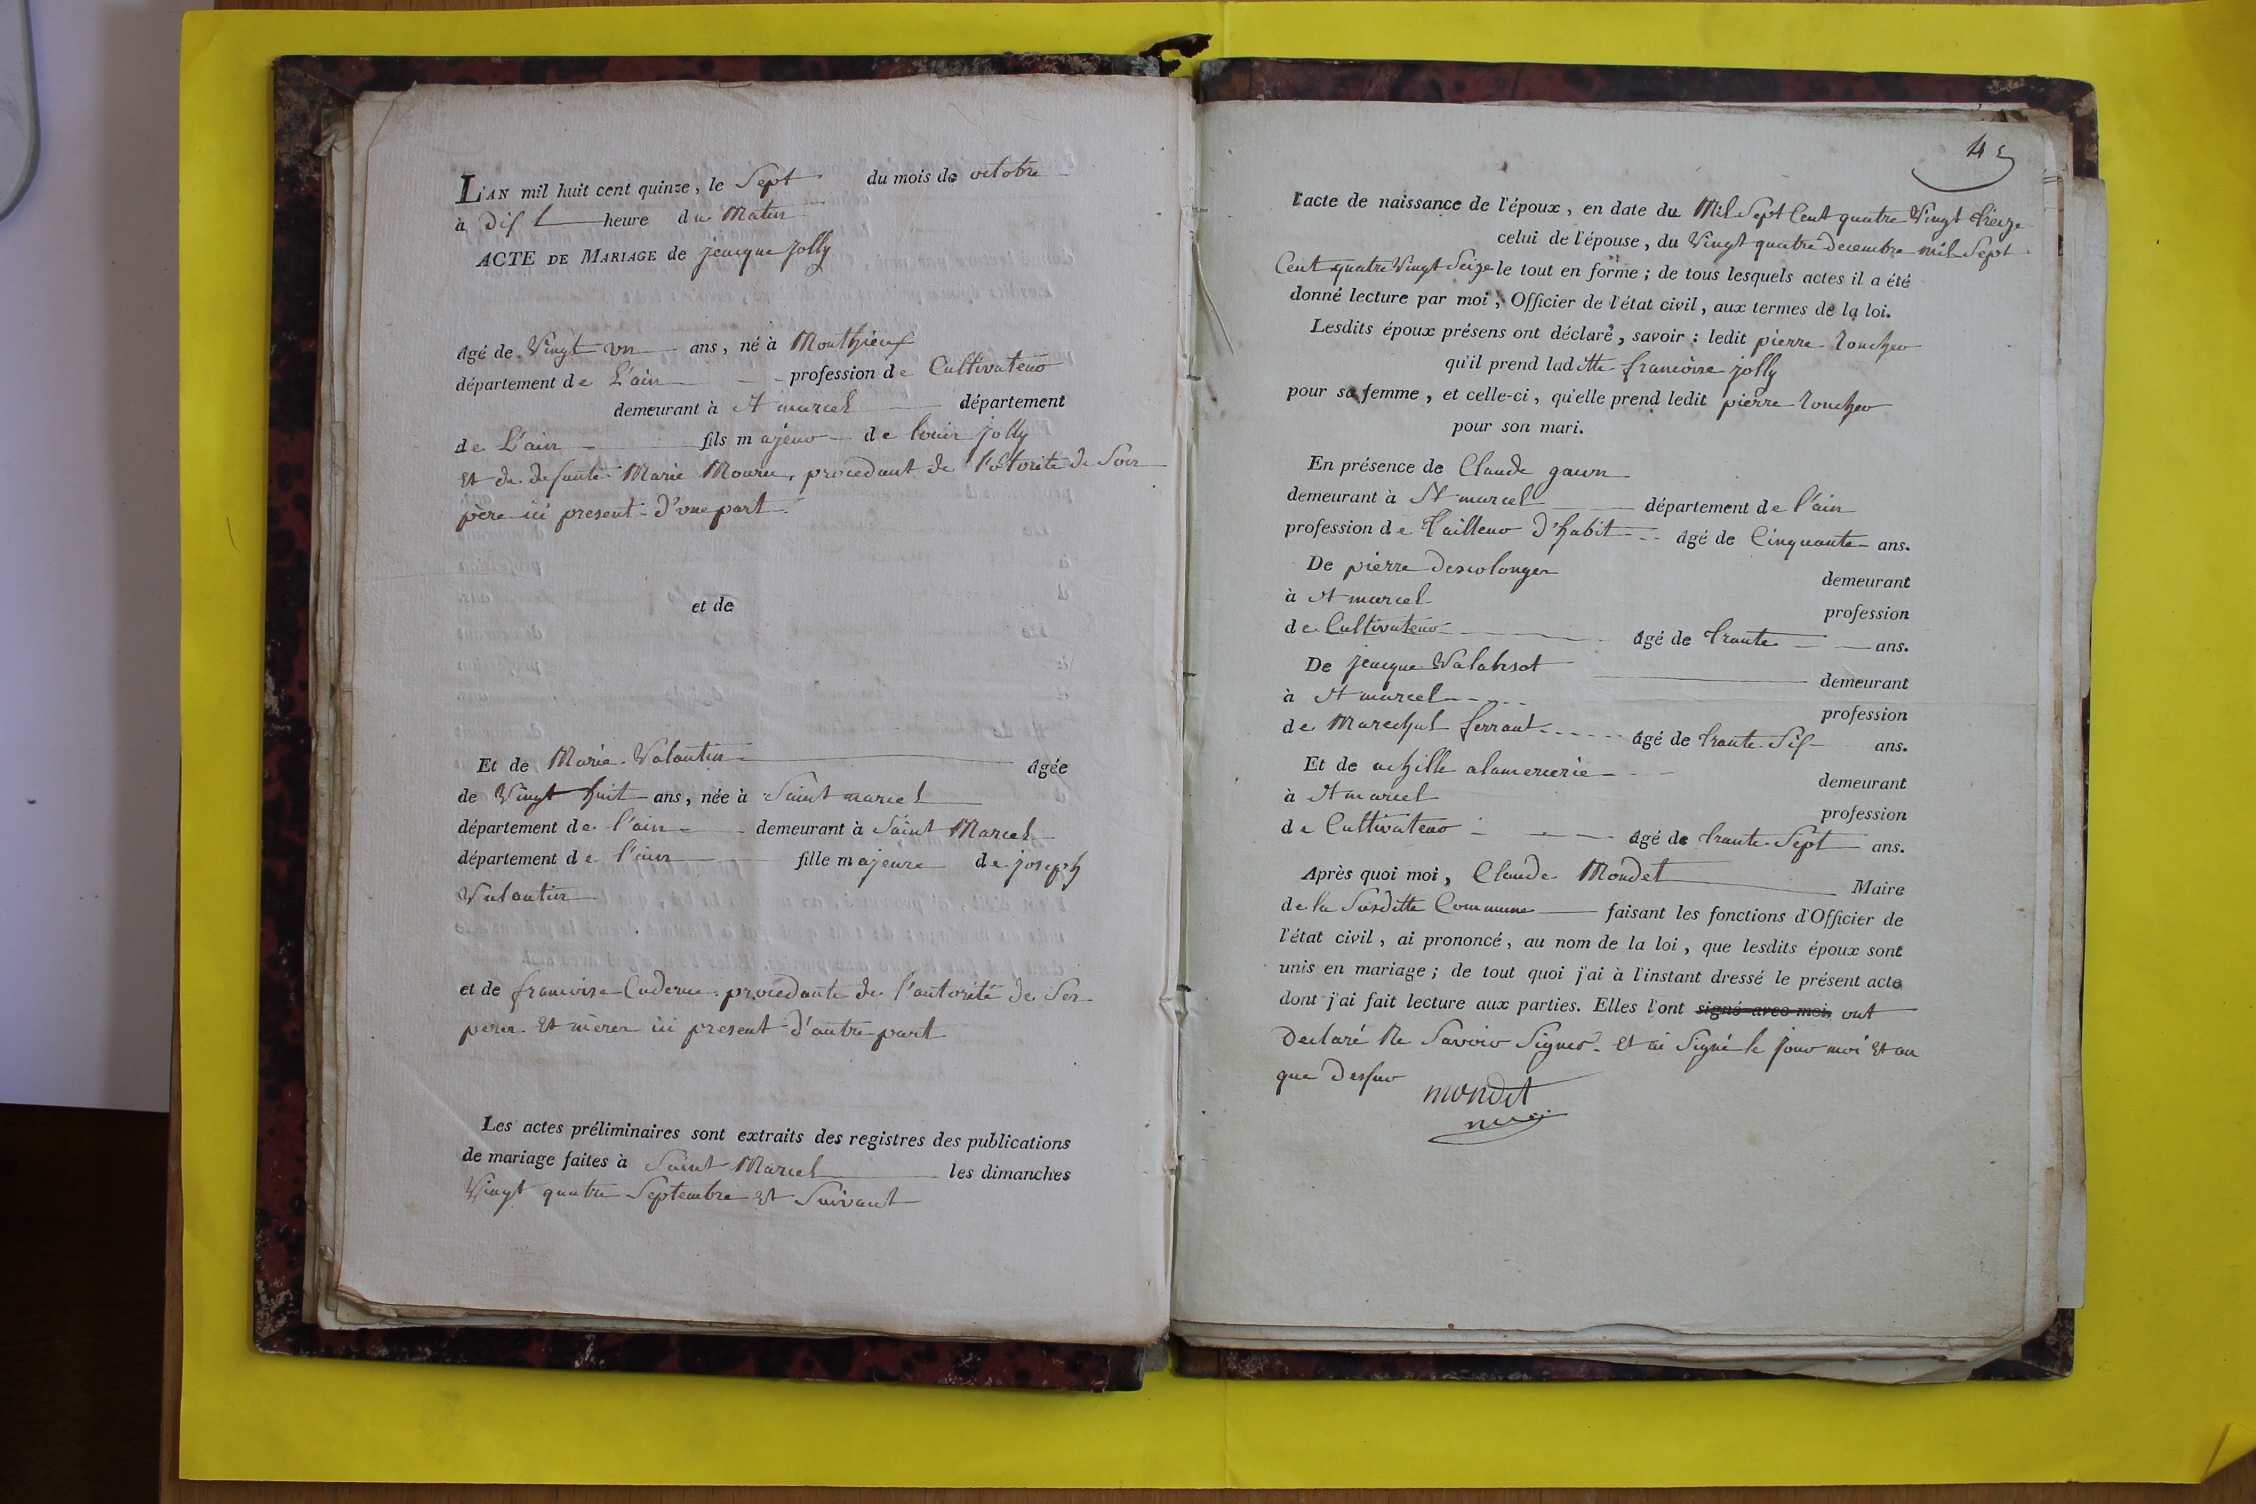 L'AN mil huit cent quinze, le Sept du mois de octobre
à Dis heure du Matin
ACTE DE MARIAGE de jeacque jolly
âgé de Vingt un ans, né à Monthieux
département de L'ain profession de Cultivateur
demeurant à St marcel département
de L'ain fils majeur de louis jolly
Et de defunte Marie procedant de de Son
père ici present d'une part
et de
Et de Marie Valantin âgée
de Vingt huit ans, née à Saint marcel
département de l'ain demeurant à Saint Marcel
département de l'ain fille majeure de joseph
Valantin
et de francoise procedante de l'autorité de Ses
peres Et mères ici present d'autre part
Les actes préliminaires sont extraits des registres des publications
de mariage faites à Saint Marcel les dimanches
Vingt quatre Septembre Et Suivant
45
l'acte de naissance de l'époux, en date du Mil Sept Cent quatre Vingt treize
celui de l'épouse, du Vingt quatre decembre mil Sept
Cent quatre Vingt Seize le tout en forme ; de tous lesquels actes il a été
donné lecture par moi, Officier de l'état civil, aux termes de la loi.
Lesdits époux présens ont déclaré, savoir : ledit pierre
qu'il prend laditte francoise jolly
pour sa femme, et celle-ci, qu'elle prend ledit pierre
pour son mari.
En présence de Claude
demeurant à St marcel département de l'ain
profession de tailleur d'habit âgé de Cinquante ans.
De pierre demeurant
à St marcel profession
de Cultivateur âgé de trante ans.
De jeacque demeurant
à St marcel profession
de Marechal ferrant âgé de trante Six ans.
Et de achille alamercerie demeurant
à St marcel profession
de Cultivateur âgé de trante Sept ans.
Après quoi moi, Claude Mondet Maire
de la Susditte Commune faisant les fonctions d'Officier de
l'état civil, ai prononcé, au nom de la loi, que lesdits époux sont
unis en mariage ; de tout quoi j'ai à l'instant dressé le présent acte
dont j'ai fait lecture aux parties. Elles l'ont signé avec moi, ont
Declaré Ne Savoir Signer Et ai Signé le jour moi Et an
que Dessus mondet